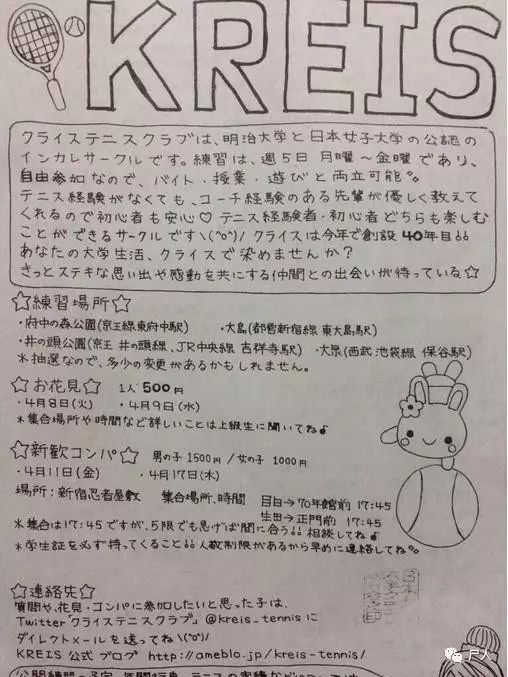 KREIS
クライステニスクラブは、明治大学と日本女子大学の公認の
インカレサークルです。練習は、週5日 月曜～金曜であり、
自由参加なので、バイト・授業・遊びと両立可能°。
テニス経験がなくても、コーチ経験のある先輩が優しく教えて
くれるので初心者も安心♡ テニス経験者・初心者どちらも楽しむ
ことができるサークルです\(^o^)/ クライスは今年で創設40年目!!
あなたの大学生活、クライスで染めませんか?
きっとステキな思い出や感動を共にする仲間との出会いが待っている☆
☆練習場所☆
・府中の森公園(京王線東府中駅) ・大島(都営新宿線 東大島駅)
・井の頭公園(京王 井の頭線、JR中央線 吉祥寺駅) ・大泉(西武池袋線 保谷駅)
*抽選なので、多少の変更があるかもしれません。
☆お花見☆ 1人500円
・4月8日(火) ・4月9日(水)
*集合場所や時間など詳しいことは上級生に聞いてね♪
☆新歓コンパ☆ 男の子 1500円 / 女の子 1000円
・4月11日(金) ・4月17日(木)
場所:新宿忍者屋敷 集合場所、時間 目白→70年館前 17:45
生田→正門前 17:45
*集合は17:45ですが、5限でも急げば間に合う!!相談してね♪
*学生証を必ず持ってくること!!人数制限があるから早めに連絡してね°。
☆連絡先☆
質問や、花見・コンパに参加したいと思った子は、
Twitter「クライステニスクラブ」@kreis_tennisに
ダイレクトメールを送ってね\(^o^)/
KREIS 公式ブログ http://ameblo.jp/kreis-tennis/
尸人